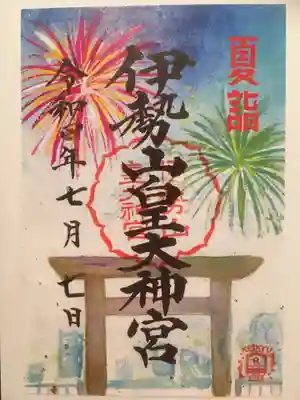 夏詣
伊勢山皇大神宮
令和四年七月七日